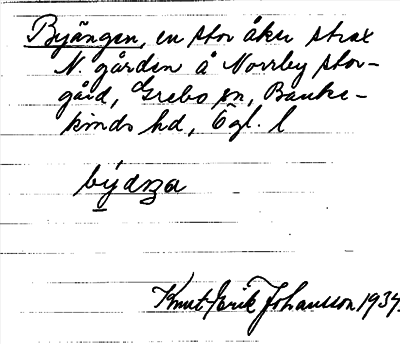 Byängen, en stor åker strax
N. gården å Norrby stor-
gård, Grebo sn, Banke-
kinds hd, Ögl. l
Knut Erik Johansson 1934.